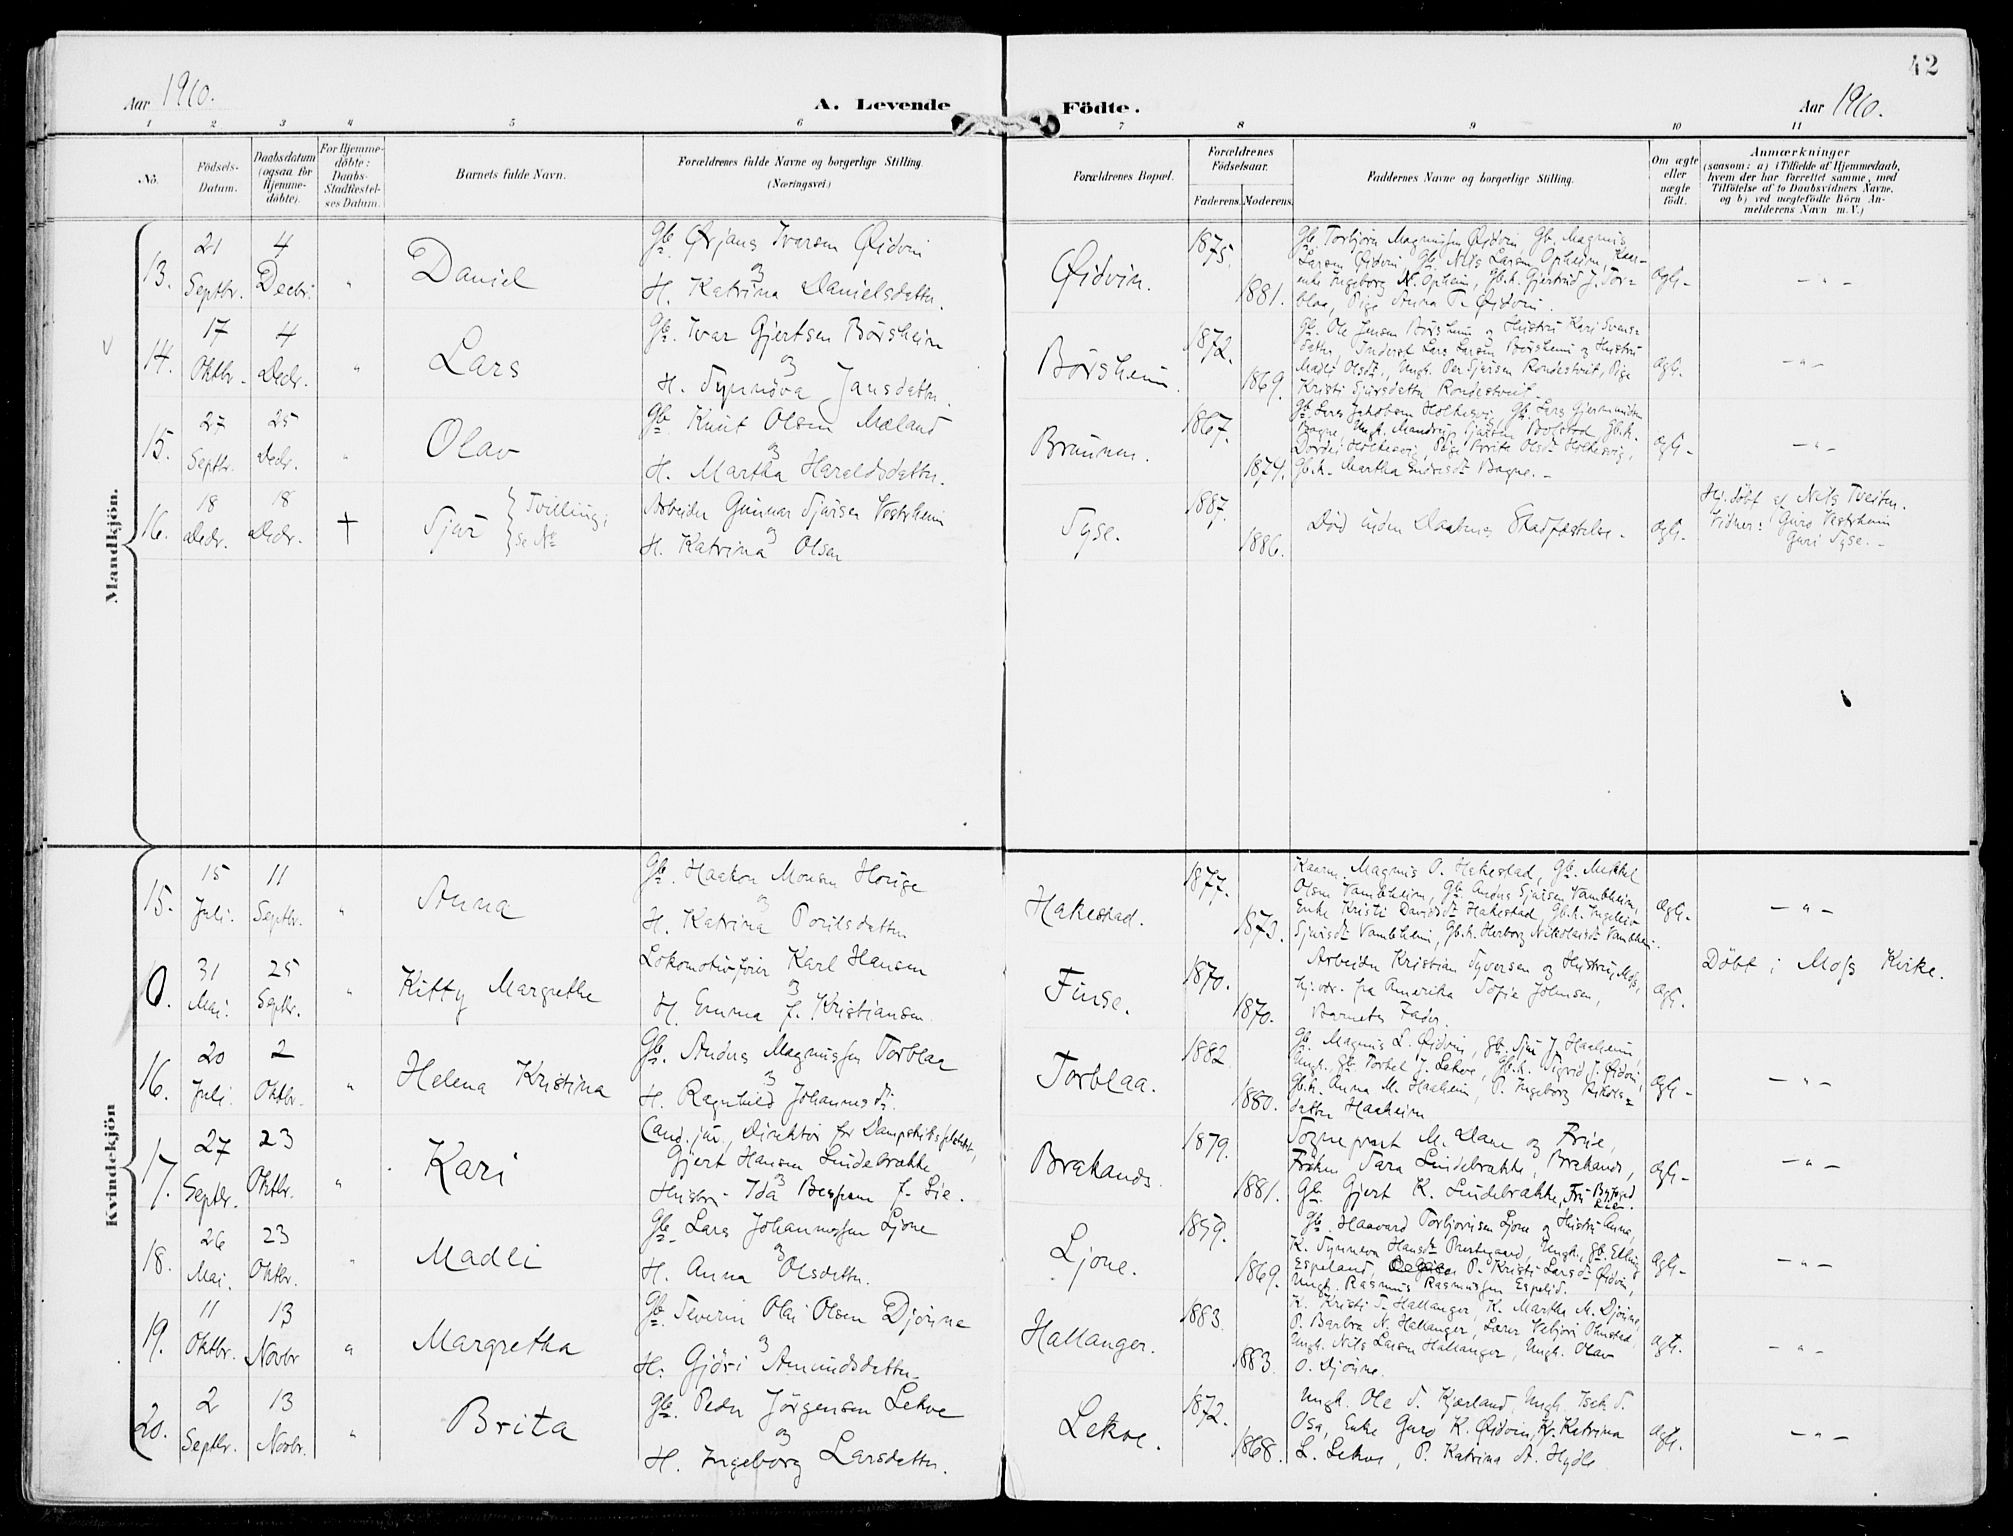 42
Aar 1910. A. Levende Födte. Aar 1910.
1 2 3 4 5 6 7 8 9 10 11
No. Födsels-Datum. Daabsdatum (ogsaa for Hjemme-döbte). For Hjemme-döbte: Daabs-Stadfæstel-ses Datum. Barnets fulde Navn. Forældrenes fulde Navne og borgerlige Stilling. (Næringsvei.) Forældrenes Bopæl. Forældrenes Födselsaar. Faderens. Moderens. Faddernes Navne og borgerlige Stilling. Om ægte eller uægte födt. Anmærkninger
(saasom: a) i Tilfælde af Hjemmedaab,
hvem der har forrettet samme, med
Tilföielse af to Daabsvidners Navne,
og b) ved uægtefödte Börn An-
melderens Navn m. V.)
Mandkjön.
13. 21 Septbr. 4 Decbr. " Daniel
Gb. Ørjans Ivarsen Øidvin
og
H. Katrina Danielsdatter.
Øidvin. 1875. 1881.
Gb. Torbjørn Magnussen Øidvin, Gb. Magnus
Larsen Øidvin, Gb. Nils Larsen Opheim,
Ingeborg N. Opheim, Gb.k. Gjertrud J. Tor-
blaa, Pige Anna T. Øidvin.
Ægte - " -
14. 17 Oktbr. 4 Decbr. " Lars
Gb. Ivar Gjertsen Børsheim
og
H. Synnøva Jansdatter.
Børsheim. 1872. 1869.
Gb. Ole Jensen Børsheim og Hustru Kari Svens-
datter, Inderst Lars Larsen Børsheim og Hustru
Madli Olsdt., Ungk. Per Sjursen Rondestveit, Pige
Kristi Sjursdatter Rondestveit.
Ægt. - " -
15. 27 Septbr. 25 Decbr. " Olav
Gb. Knut Olsen Mæland
og
H. Martha Haraldsdatter.
Bruunen. 1867. 1874.
Gb. Lars Jakobsen Holtesvig, Gb. Lars Gjermundsen
Bagne, Ungk. Mandrup Sjursen Bolstad, Gb.k.
Dordei Holtesvig, Pige Brita Olsdt. Holtesvig,
Gb.k. Martha Endresdt. Bagne.
Ægt. - " -
16. 18 Decbr. 18 Decbr. † Sjur Tvilling; se No
Arbeider Gunnar Sjursen Vestrheim
og
H. Katrina Olsen
Syse. 1887. 1886.
Død uden Daabens Stadfæstelse.
Ægt.
Hj. döbt af Nils Tveiten.
Vidner: Guro Vestrheim
Guri Syse.
Kvindekjön
15. 15 Juli. 11 Septbr. " Anna
Gb. Haakon Monsen Horige
og
H. Katrina Povilsdatter
Hakestad. 1877. 1873.
Kaarm. Magnus O. Hakestad, Gb. Mikkel
Olsen Vambheim, Gb. Anders Sjursen Vambheim,
Enke Kristi Davidsdt. Hakestad, Gb.k. Ingeleiv
Sjursdt. Vambheim, Gb.k. Herborg Nikolaisdt. Vambheim.
Ægt. - " -
0. 31 Mai. 25 Septbr. " Kitty Margrethe
Lokomotivfører Karl Hansen
og
H. Emma f. Kristiansen.
Finse. 1870. 1870.
Arbeider Kristian Syversen og Hustru, Moss,
hj.vær. fra Amerika Sofie Johnsen,
Barnets Fader.
Ægt.
Döbt i Moss Kirke.
16. 20 Juli. 2 Oktbr. " Helena Kristina
Gb. Anders Magnussen Torblaa
og
H. Ragnhild Johannesdt.
Torblaa. 1882 1880.
Gb. Magnus L. Øidvin, Gb. Sjur J. Haaheim,
Ungk. Gb. Torkel J. Lekve, Gb.k. Sigrid J. Øidvin,
Gb.k. Anna M. Haaheim, P. Ingeborg Nikolai-
datter Haaheim
Ægt. - " -
17. 27 Septbr. 23 Oktbr. " Kari
Cand. jur., Direktør for Dampskibsselskabet,
Gjert Hansen Lindebrække
og
Hustru Ida Bergom f. Lie.
Brakanes. 1879. 1881.
Sogneprest M. Daae og Frue,
Frøken Sara Lindebrække, Brakanes,
Gb. Gjert K. Lindebrække, Fru Bergljot Lie.
Ægt. - " -
18. 26 Mai. 23 Oktbr. " Madli
Gb. Lars Johannessen Ljone
og
H. Anna Olsdatter.
Ljone. 1859. 1869.
Gb. Haavard Torbjørnsen Ljone og Hustru Anna,
K. Synneva Hansdt. Prestegaard, Ungk. Gb. Elling
Espeland, P. Kristi Larsdt. Øidvin,
Ungk. Rasmus Rasmussen Espelid.
Ægt. - " -
19. 11 Oktbr. 13 Novbr " Margretha
Gb. Severin Olai Olsen Djønne
og
H. Gjöri Amundsdatter
Hallanger. 1883. 1883.
K. Kristi S. Hallanger, K. Martha M. Djønne,
P. Barbra N. Hallanger, Lærer Vebjørn Olmstad,
Ungk. Nils Larsen Hallanger, Ungk. Olav
O. Djönne.
Ægt. - " -
20. 2 Septbr. 13 Novbr. " Brita
Gb. Peder Jörgensen Lekve
og
H. Ingeborg Larsdatter.
Lekve. 1872. 1868.
Ungk. Ole S. Kjærland, Ungk. Isak S.
Osa, Enke Guro K. Øidvin, K. Katrina
L. Lekve, P. Katrina A. Hydle
Ægt. - " -